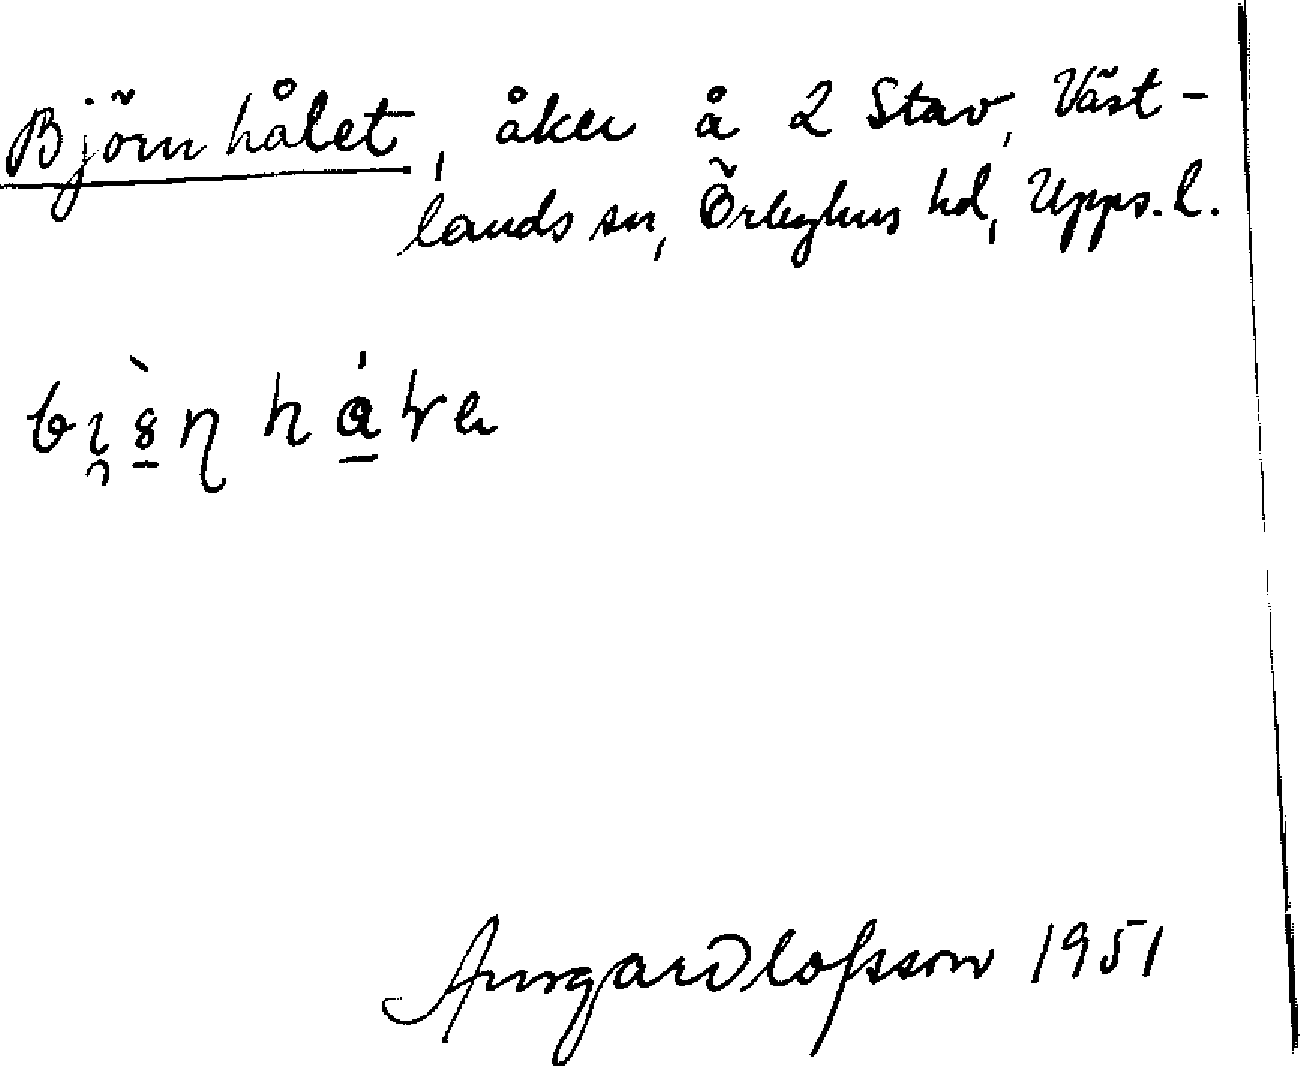 Björnhålet, åker å 2 Stav, Väst-
lands sn, Örbyhus hd, Upps. l.
Olofsson 1951